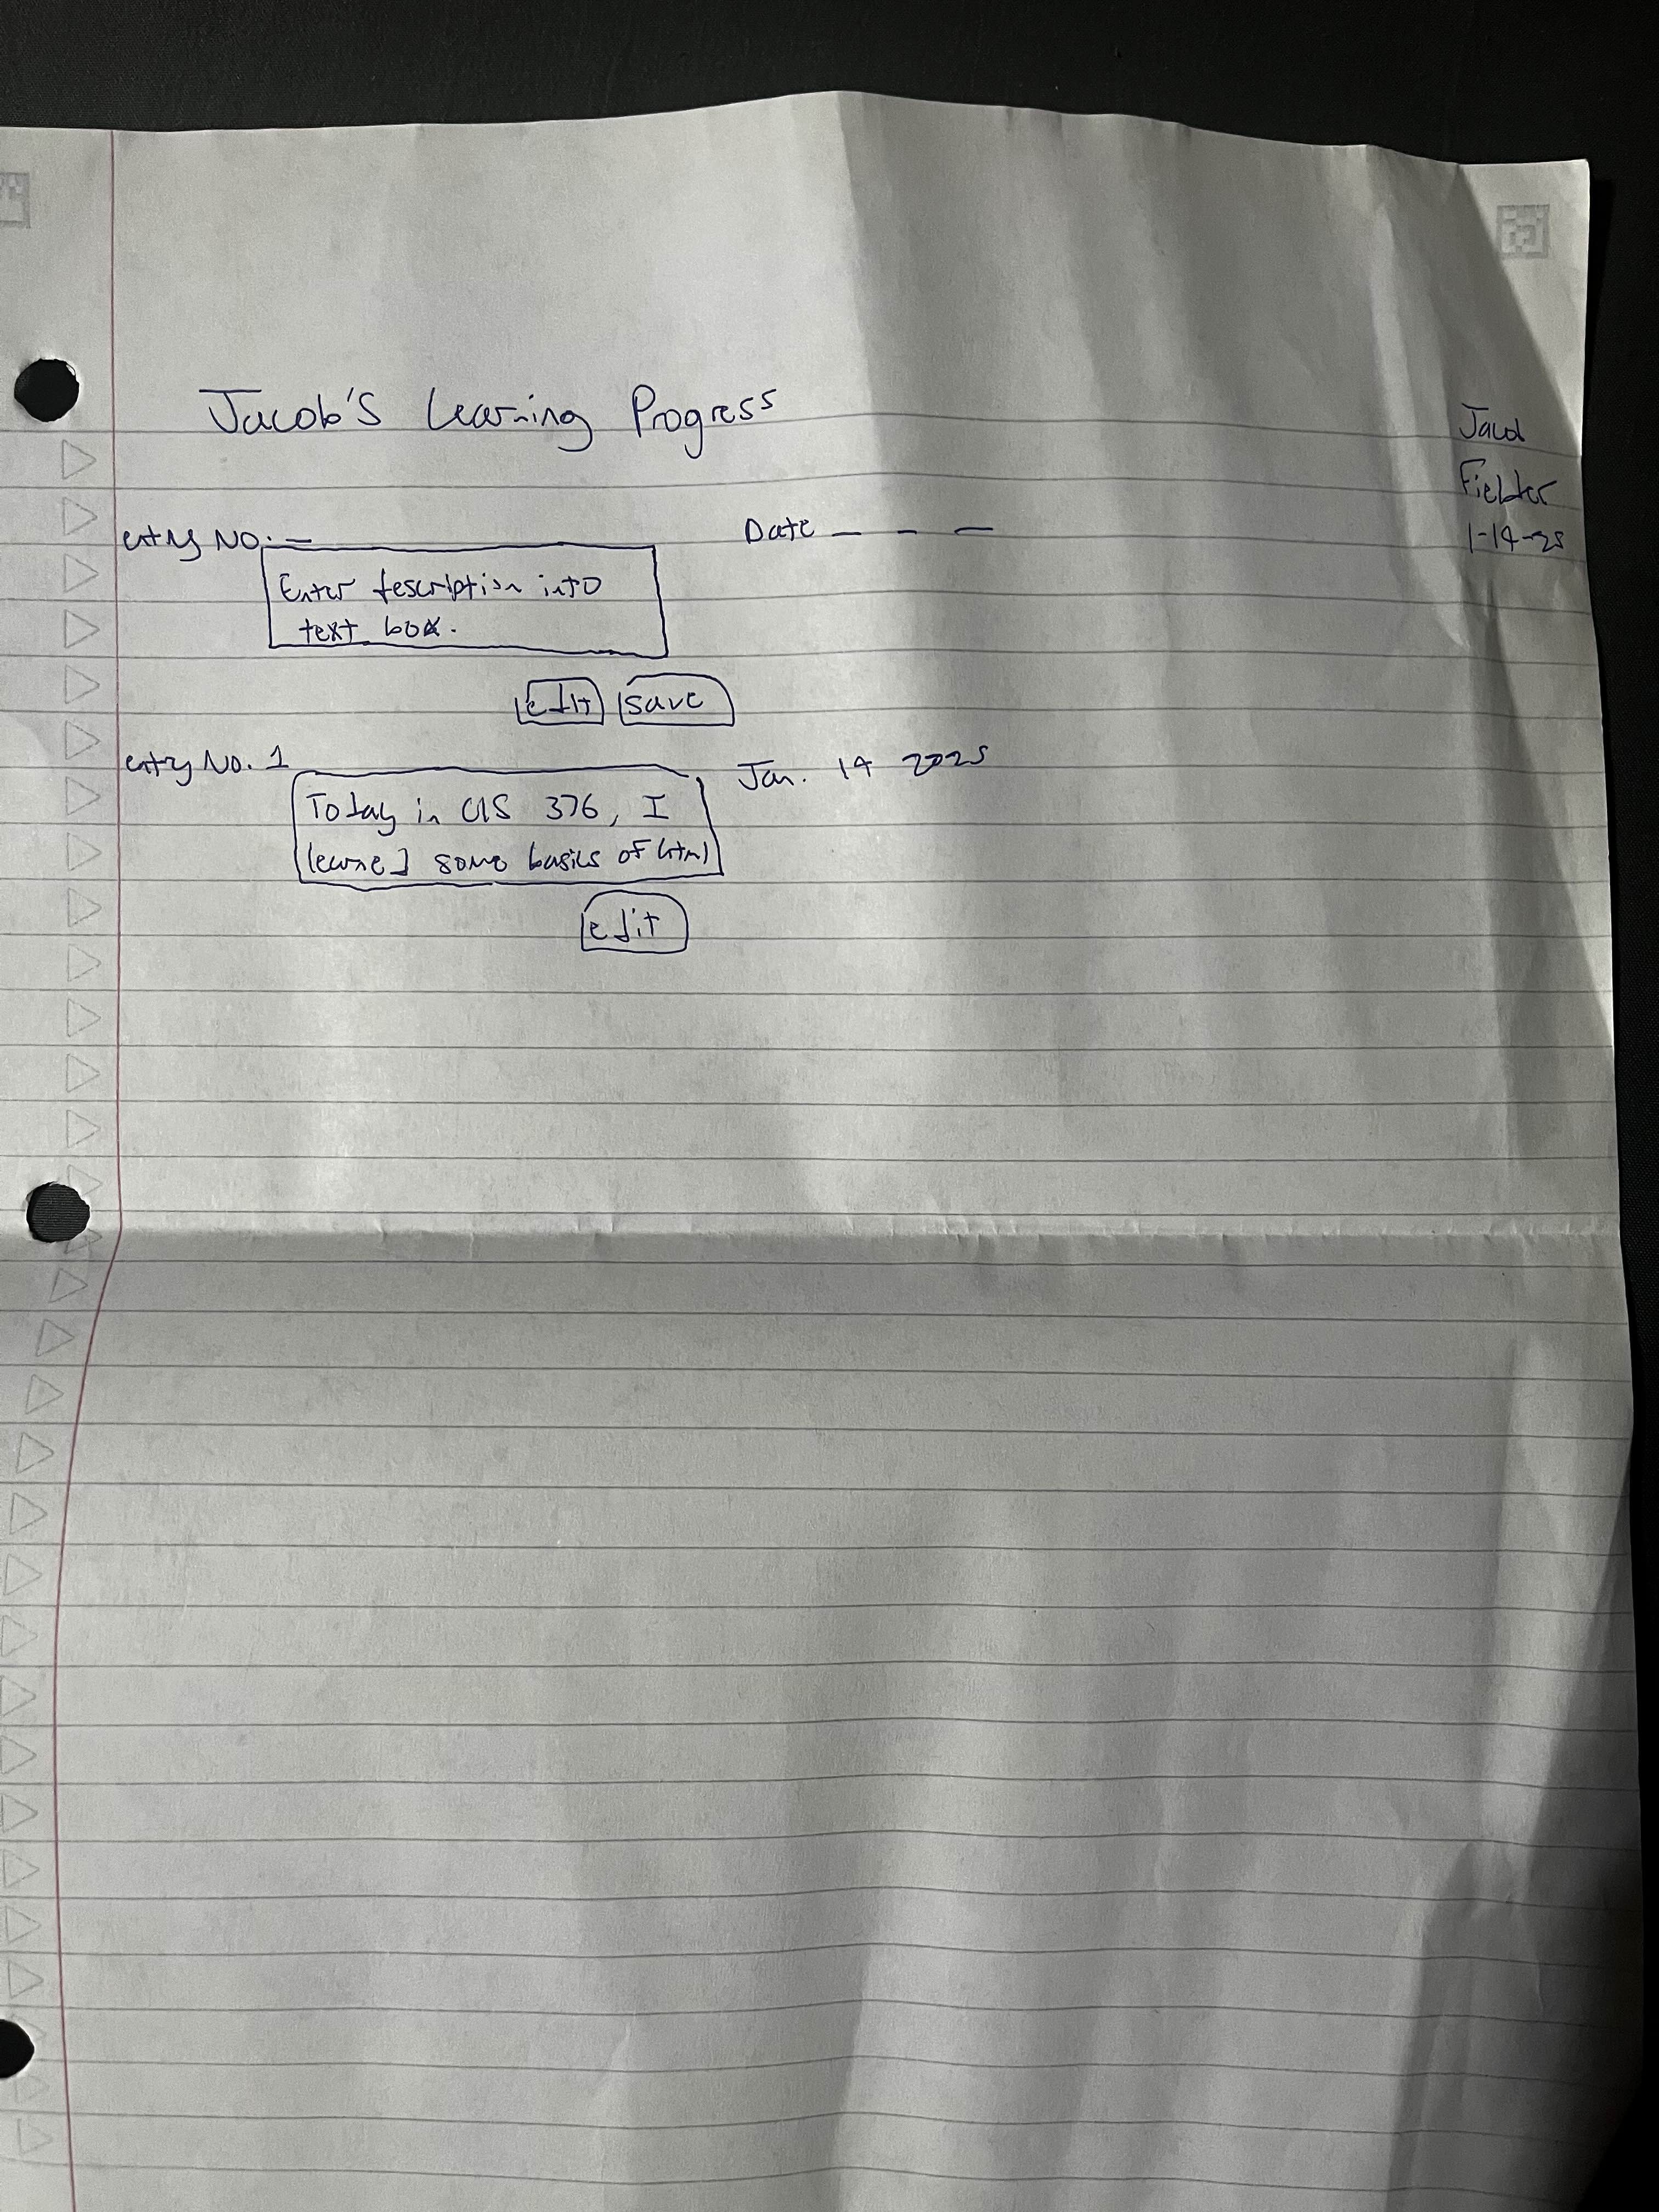 Jacob's Learning Progress
Jacob
Fielder
1-14-25
entry NO. _ Date _ _ _
Enter description into
text box.
edit save
entry No. 1 Jan. 14 2025
Today in CIS 376, I
learned some basics of html
edit